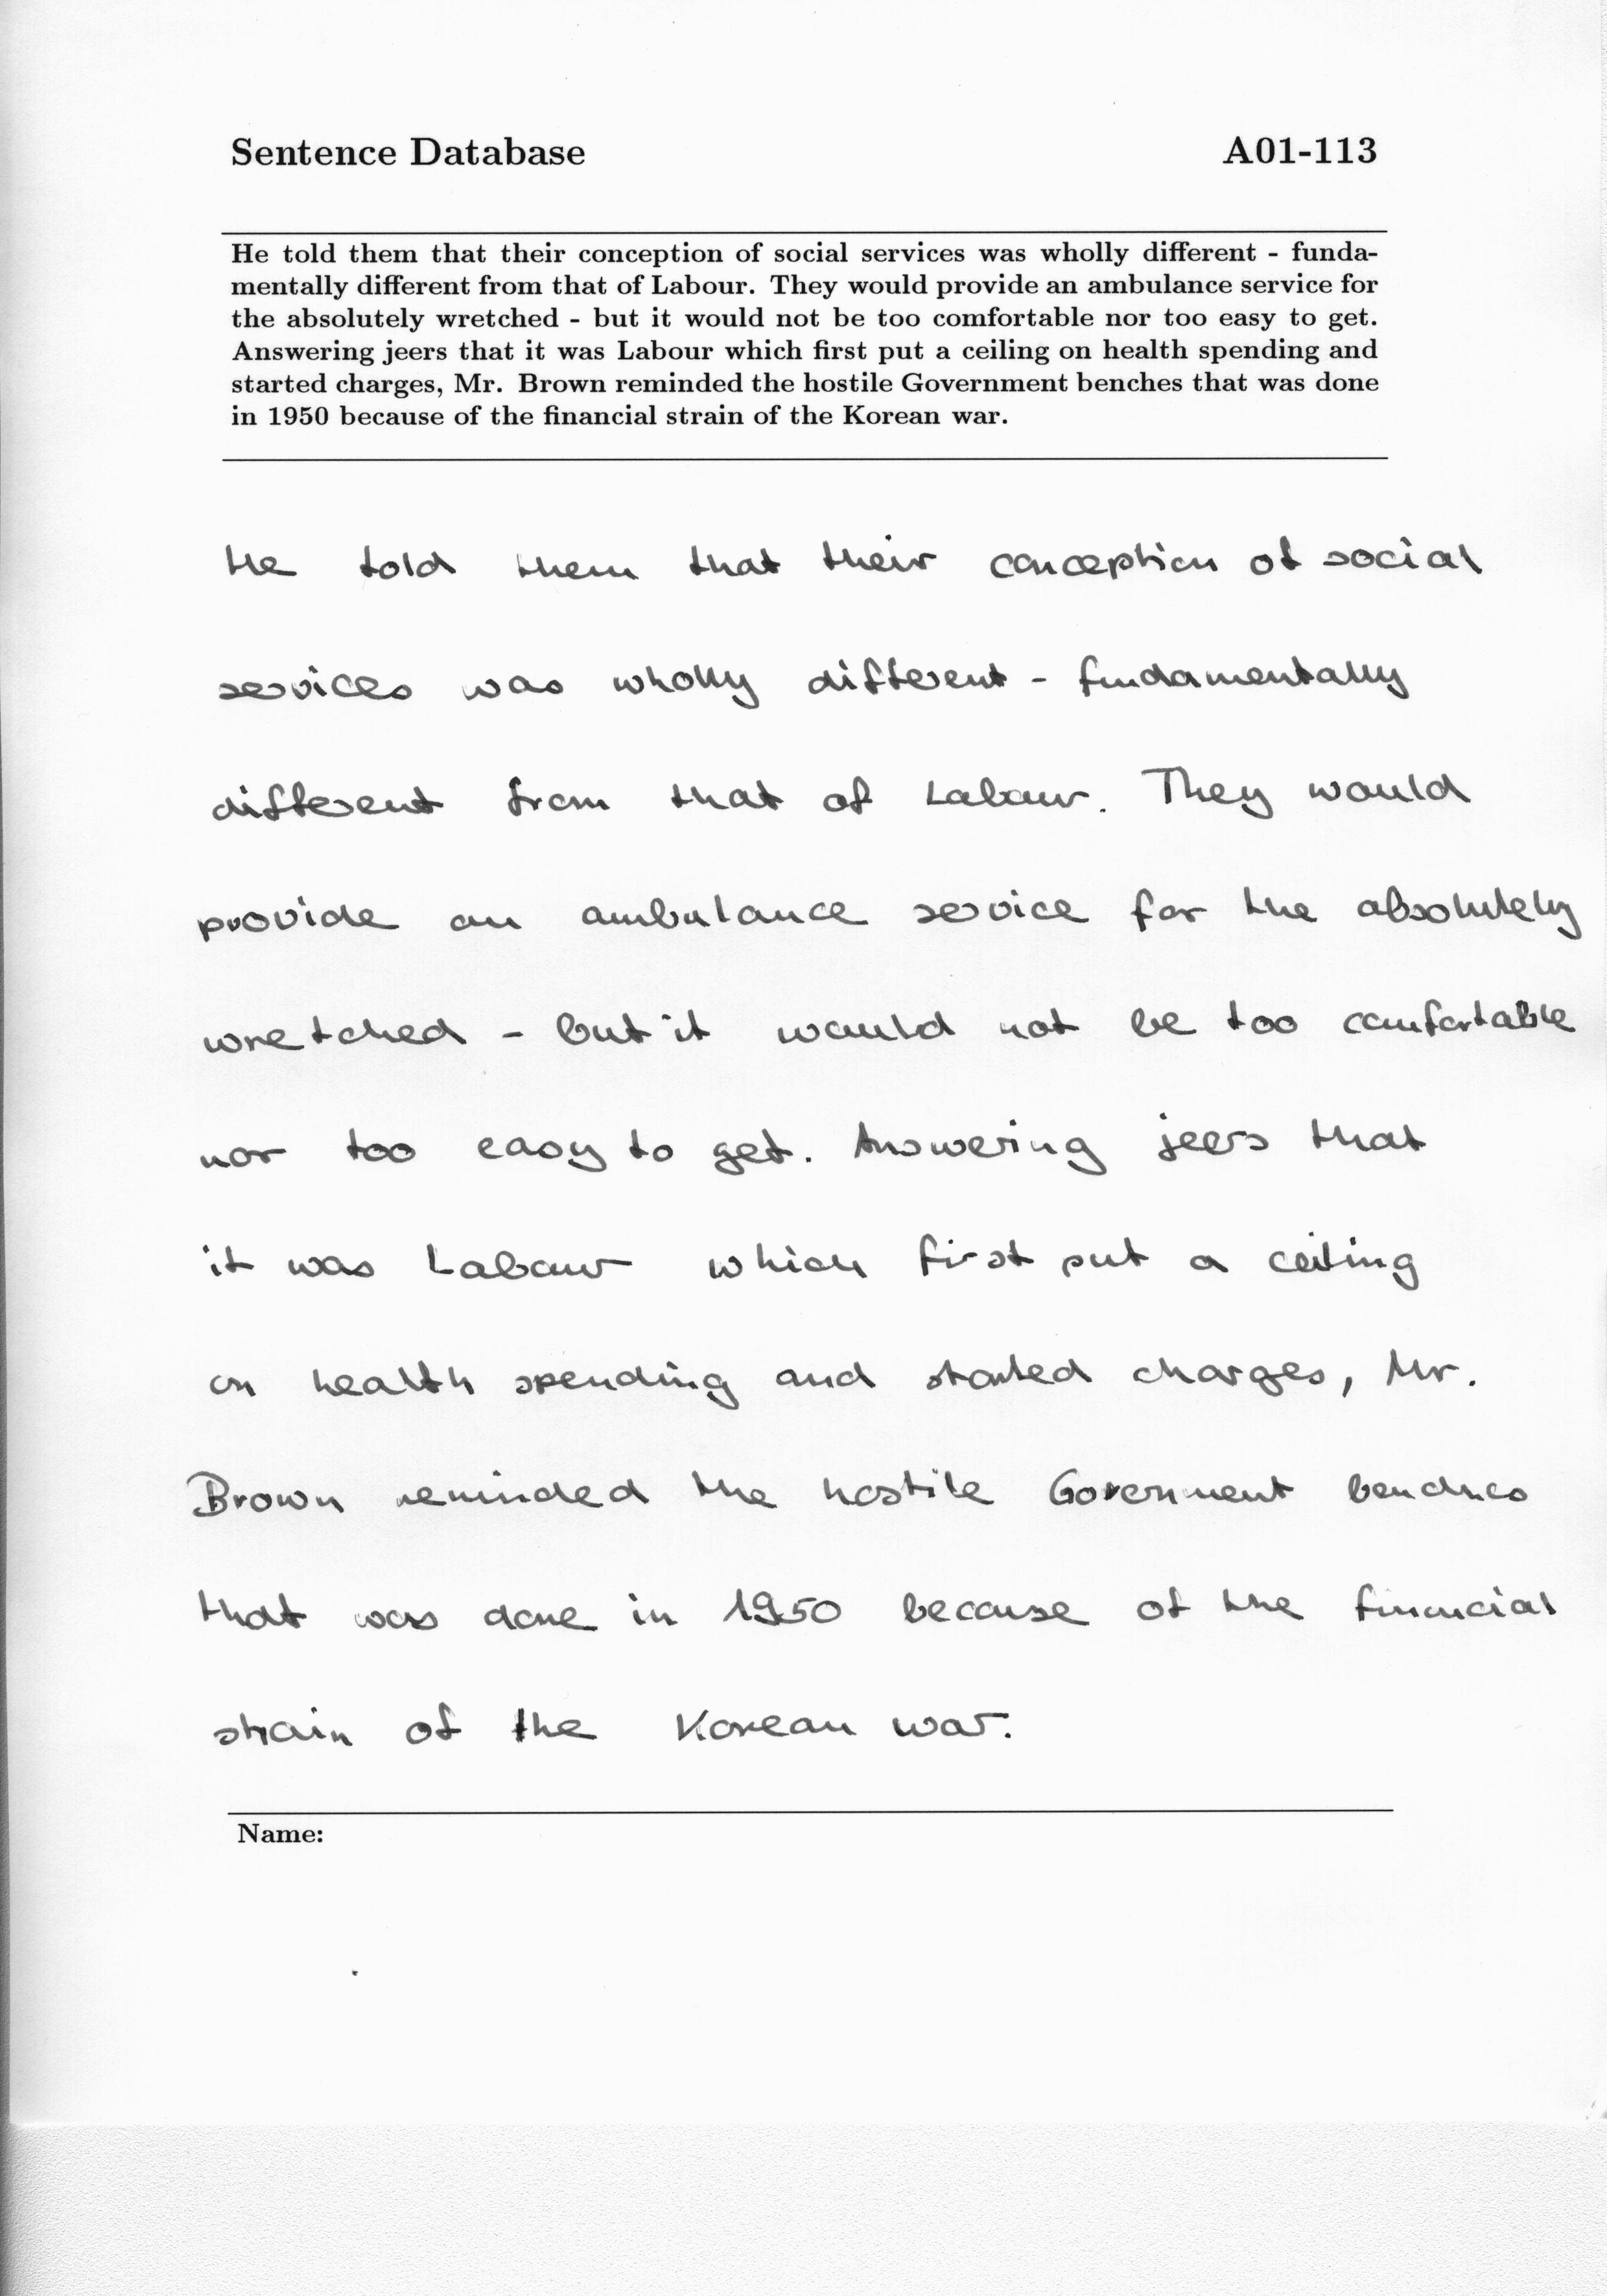 Sentence Database A01-113
He told them that their conception of social services was wholly different - funda-
mentally different from that of Labour. They would provide an ambulance service for
the absolutely wretched - but it would not be too comfortable nor too easy to get.
Answering jeers that it was Labour which first put a ceiling on health spending and
started charges, Mr. Brown reminded the hostile Government benches that was done
in 1950 because of the financial strain of the Korean war.
He told them that their conception of social
services was wholly different - fundamentally
different from that of Labour. They would
provide an ambulance service for the absolutely
wretched - but it would not be too comfortable
nor too easy to get. Answering jeers that
it was Labour which first put a ceiling
on health spending and started charges, Mr.
Brown reminded the hostile Government benches
that was done in 1950 because of the financial
strain of the Korean war.
Name: